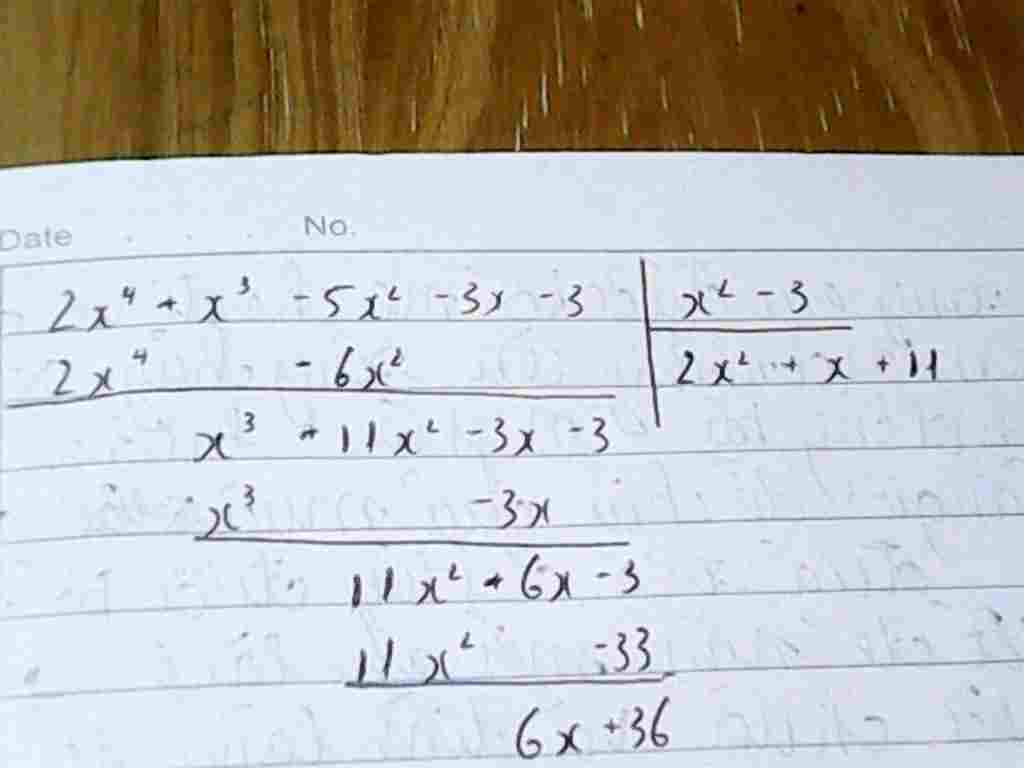 Date No.
2x⁴ + x³ - 5x² - 3x - 3 | x² - 3
2x⁴ - 6x² | 2x² + x + 11
x³ + 11x² - 3x - 3
x³ - 3x
11x² + 6x - 3
11x² - 33
6x + 36